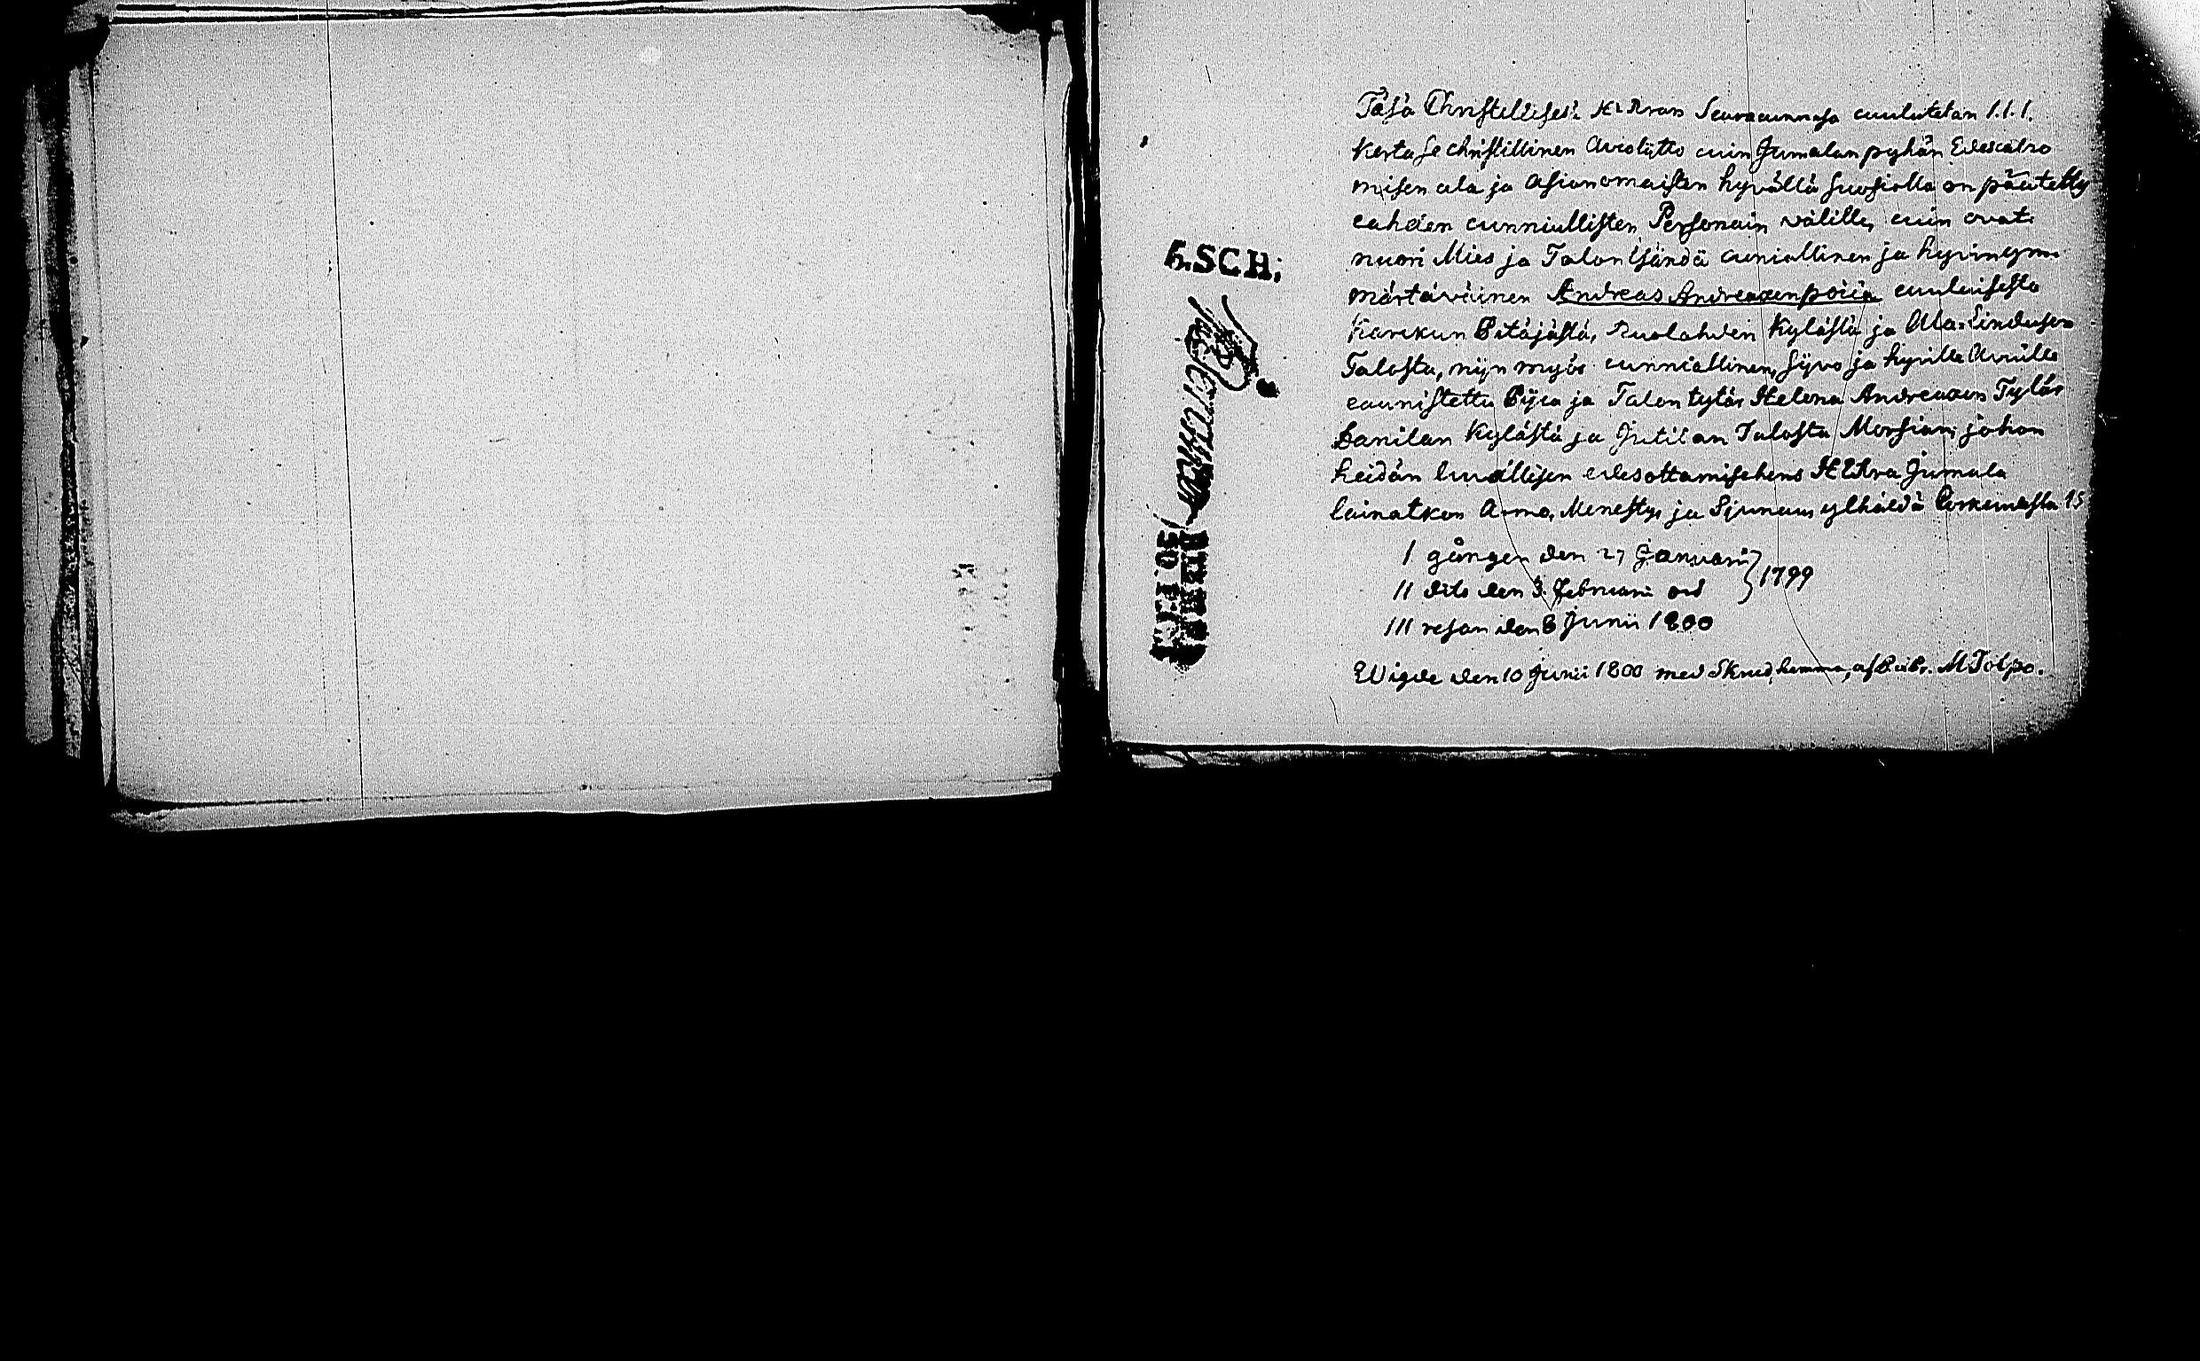 Täsä Christellises HERran Seuracunnasa cuulutetan 1.1.1.
Kerta se christillinen Aviolijtto cuin Jumalan pyhän Edescatzo
misen ala ja Asianomaisten hyvällä suosiolla on päätetty
cahden cunniallisten Personain wälille, cuin ovat
nuori Mies ja Talon Isändä cuniallinen ja hyvinym
märtäväinen Andreas Andreaxenpoica cuuluisesta
Karckun Pitäjästä, Ruolahden Kylästä ja Ala-Lindusen
Talosta, nijn myös cunniallinen, sijvo ja hyville Avuille
caunistettu Pijca ja Talon tytär Helena Andreaxen Tytär
Sanilan Kylästä ja Jutilan Talosta Morsian; johon
heidän luvallisen edesottamisehens HERra Jumala
lainatkon Armo, Menestys ja Sjunaus ylhäldä Corkeudesta
I gången den 27 Januarii } 1799
II dito den 3 Februarii
III resan den 8 Junii 1800
Wigde den 10 Junii 1800 med Skrud, hemma, af M Tolpo.
H.SCH;